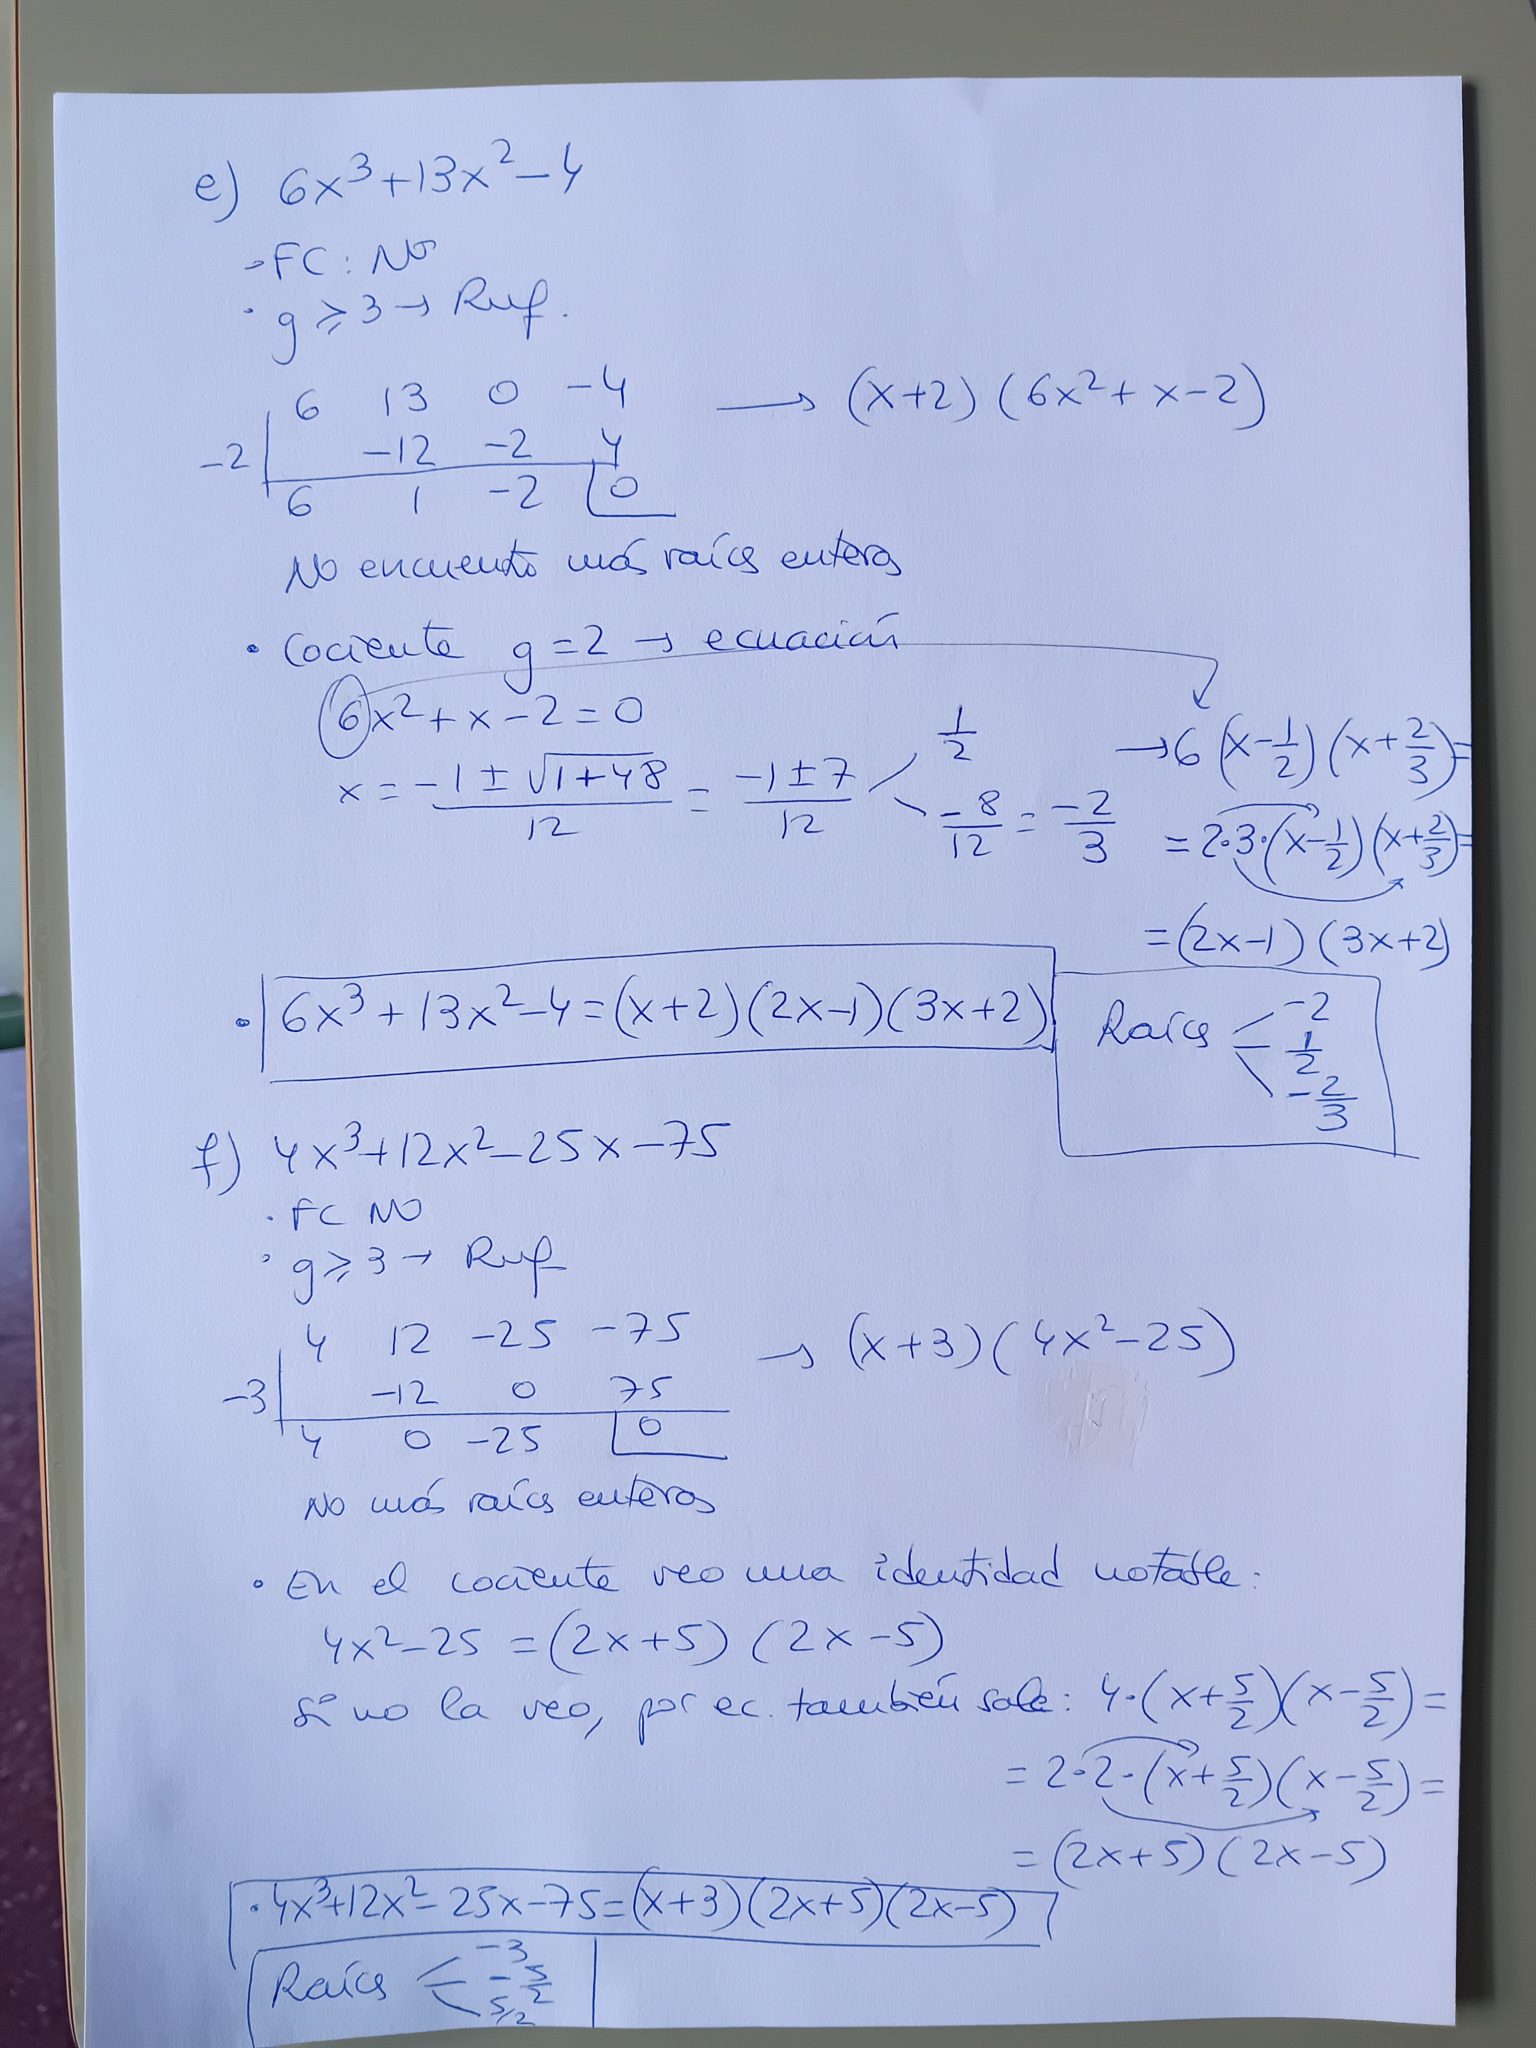 e) 6x³+13x²-4
→FC: NO
· g≥3→ Ruf.
6 13 0 -4 → (x+2)(6x²+x-2)
-2 | -12 -2 4
6 1 -2 | 0
No encuentro más raíces enteras
· Cociente g=2→ ecuación
6x²+x-2=0
x = (-1±√(1+48))/12 = (-1±7)/12 1/2 -8/12 = -2/3
→6(x-1/2)(x+2/3)=
=2·3·(x-1/2)(x+2/3)=
=(2x-1)(3x+2)
· 6x³+13x²-4=(x+2)(2x-1)(3x+2)
Raíces -2 1/2 -2/3
f) 4x³+12x²-25x-75
· FC NO
· g≥3→ Ruf
4 12 -25 -75 → (x+3)(4x²-25)
-3 | -12 0 75
4 0 -25 | 0
No más raíces enteras
· En el cociente veo una identidad notable:
4x²-25 = (2x+5)(2x-5)
Si no la veo, por ec. también sale: 4·(x+5/2)(x-5/2)=
= 2·2·(x+5/2)(x-5/2)=
= (2x+5)(2x-5)
· 4x³+12x²-25x-75=(x+3)(2x+5)(2x-5)
Raíces -3 -5/2 5/2